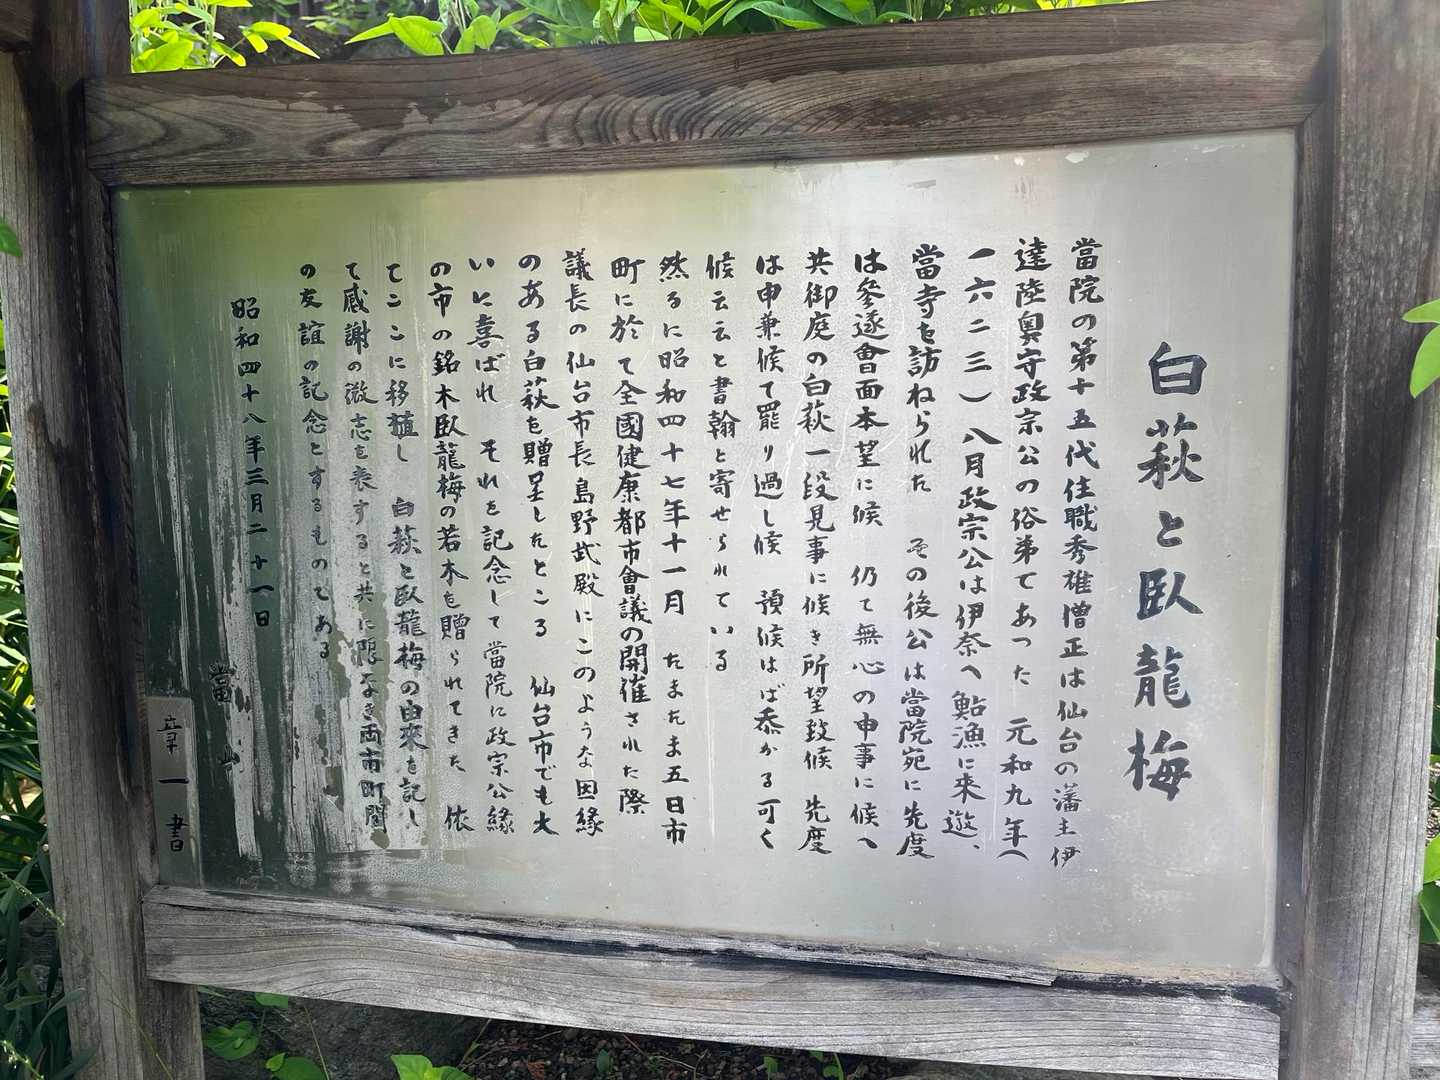 白萩と臥龍梅
當院の第十五代住職秀雄僧正は仙台の藩主伊
達陸奥守政宗公の俗弟であった 元和九年(
一六二三)八月政宗公は伊奈へ鮎漁に来遊、
當寺を訪ねられた その後公は當院宛に先度
は參遂會面本望に候 仍て無心の申事に候へ
共御庭の白萩一段見事に候き所望致候 先度
は申兼候て罷り過し候 預候はば忝かる可く
候云云と書翰を寄せられている
然るに昭和四十七年十一月 たまたま五日市
町に於て全國健康都市會議の開催された際
議長の仙台市長島野武殿にこのような因縁
のある白萩を贈呈したところ 仙台市でも大
いに喜ばれ それを記念して當院に政宗公縁
の市の銘木臥龍梅の若木を贈られてきた 依
てここに移植し 白萩と臥龍梅の由來を記し
て感謝の微志を表すると共に限なき両市町間
の友誼の記念とするものである
昭和四十八年三月二十一日
當山
章一書